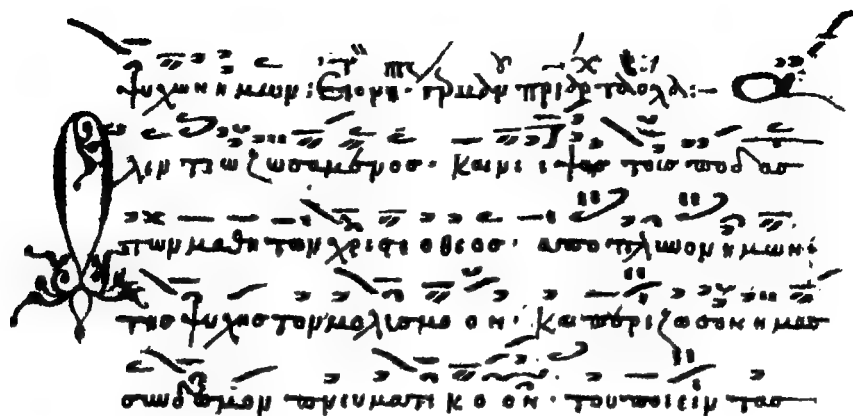 ψυχων ημων:
Ο λεντιω ζωσαμενος· και νιψας τους ποδας
των μαθητων χριστε ο θεος· αποπλυνον ημων
της ψυχης τον μολυσμο ον· και περιζωσον ημας
συνδεσμον πνευματικο ον· του ποιειν τας